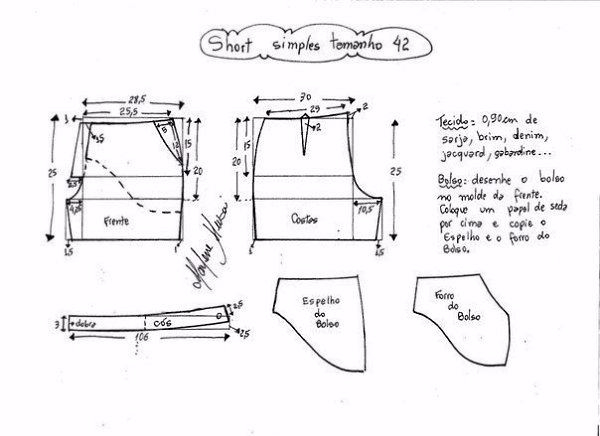 Short simples tamanho 42
28,5
25,5
3
3,5
8
12
15
20
25
2,5
4,5
1,5
1
Frente
30
29
2
2
15
20
25
10,5
1
1,5
Costas
Tecido: 0,90cm de
sarja, brim, denim,
jacquard, gabardine...
Bolso: desenhe o bolso
no molde da frente.
Coloque um papel de seda
por cima e copie o
Espelho e o forro do
Bolso.
Marlene Mukai
3
dobra
cós
2,5
2,5
106
Espelho
do
Bolso
Forro
do
Bolso